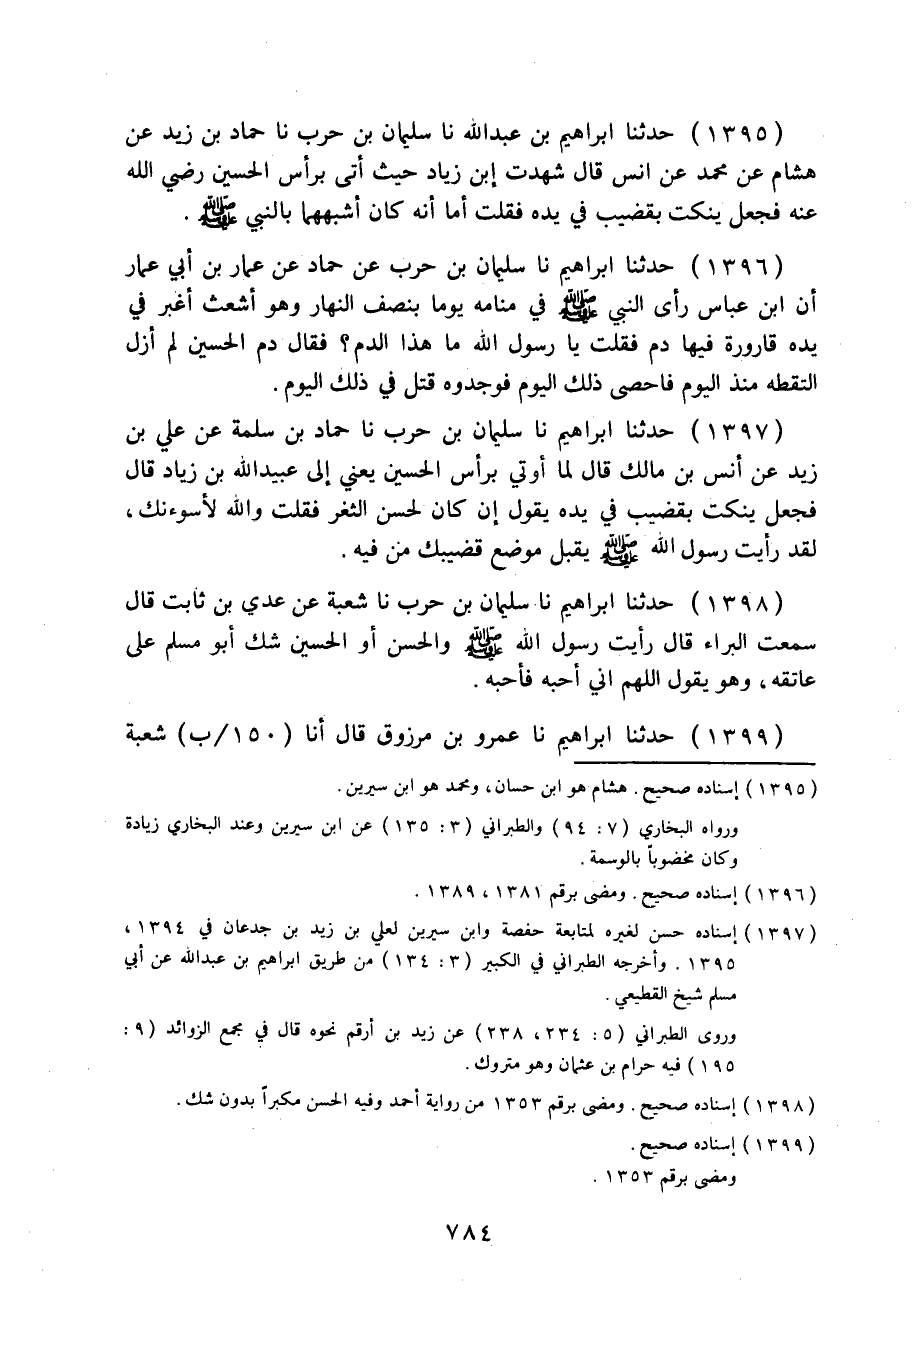 (١٣٩٥) حدثنا ابراهيم بن عبدالله نا سليمان بن حرب نا حماد بن زيد عن
هشام عن محمد عن انس قال شهدت إبن زياد حيث أتى برأس الحسين رضي الله
عنه فجعل ينكت بقضيب في يده فقلت أما أنه كان أشبههما بالنبي ﷺ .
(١٣٩٦) حدثنا ابراهيم نا سليمان بن حرب عن حماد عن عمار بن أبي عمار
أن ابن عباس رأى النبي ﷺ في منامه يوما بنصف النهار وهو أشعث أغبر في
يده قارورة فيها دم فقلت يا رسول الله ما هذا الدم؟ فقال دم الحسين لم أزل
التقطه منذ اليوم فاحصى ذلك اليوم فوجدوه قتل في ذلك اليوم .
(١٣٩٧) حدثنا ابراهيم نا سليمان بن حرب نا حماد بن سلمة عن علي بن
زيد عن أنس بن مالك قال لما أوتي برأس الحسين يعني إلى عبيدالله بن زياد قال
فجعل ينكت بقضيب في يده يقول إن كان لحسن الثغر فقلت والله لأسوءنك ،
لقد رأيت رسول الله ﷺ يقبل موضع قضيبك من فيه .
(١٣٩٨) حدثنا ابراهيم نا سليمان بن حرب نا شعبة عن عدي بن ثابت قال
سمعت البراء قال رأيت رسول الله ﷺ والحسن أو الحسين شك أبو مسلم على
عاتقه ، وهو يقول اللهم اني أحبه فأحبه .
(١٣٩٩) حدثنا ابراهيم نا عمرو بن مرزوق قال أنا (١٥٠/ب) شعبة
(١٣٩٥) إسناده صحيح . هشام هو ابن حسان ، ومحمد هو ابن سيرين .
ورواه البخاري (٧: ٩٤) والطبراني (٣: ١٣٥) عن ابن سيرين وعند البخاري زيادة
وكان مخضوباً بالوسمة .
(١٣٩٦) إسناده صحيح . ومضى برقم ١٣٨١ ، ١٣٨٩ .
(١٣٩٧) إسناده حسن لغيره لمتابعة حفصة وابن سيرين لعلي بن زيد بن جدعان في ١٣٩٤ ،
١٣٩٥ . وأخرجه الطبراني في الكبير (٣: ١٣٤) من طريق ابراهيم بن عبدالله عن أبي
مسلم شيخ القطيعي .
وروى الطبراني (٥: ٢٣٤، ٢٣٨) عن زيد بن أرقم نحوه قال في مجمع الزوائد (٩:
١٩٥) فيه حرام بن عثمان وهو متروك .
(١٣٩٨) إسناده صحيح . ومضى برقم ١٣٥٣ من رواية أحمد وفيه الحسن مكبراً بدون شك .
(١٣٩٩) إسناده صحيح .
ومضى برقم ١٣٥٣ .
٧٨٤